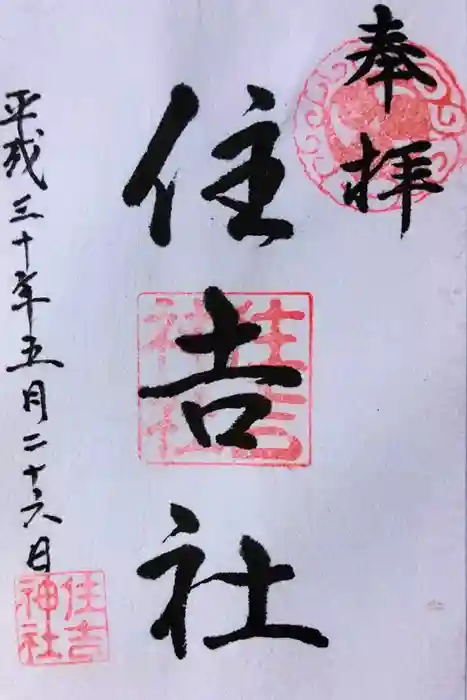 奉拝
住吉社
住吉社社
平成三十年五月二十六日
住吉神社